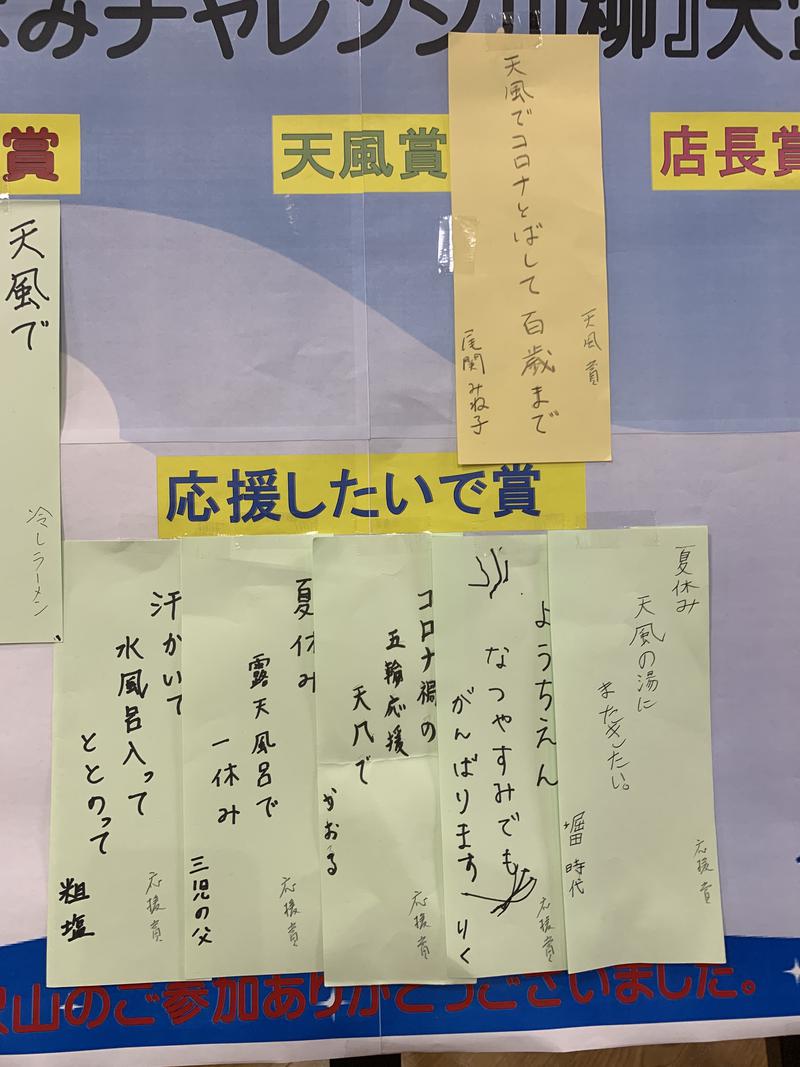 みチャレンジ川柳』大賞
賞
天風賞
店長賞
天風で
冷しラーメン
天風でコロナとばして百歳まで
天風賞
尾関みね子
応援したいで賞
夏休み
天風の湯に
またきたい。
堀田時代
応援賞
ようちえん
なつやすみでも
がんばります
りく
応援賞
コロナ禍の
五輪応援
天风で
かおる
応援賞
夏休み
露天風呂で
一休み
三児の父
応援賞
汗かいて
水風呂入って
ととのって
粗塩
応援賞
沢山のご参加ありがとうございました。